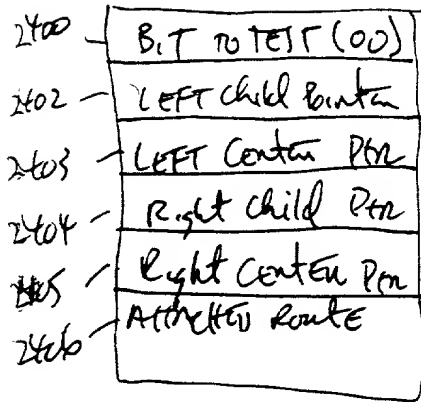 2400 BIT TO TEST (00)
2402 LEFT Child Pointer
2403 LEFT Center Ptr
2404 Right Child Ptr
2405 Right Center Ptr
2406 ATTACHED Route